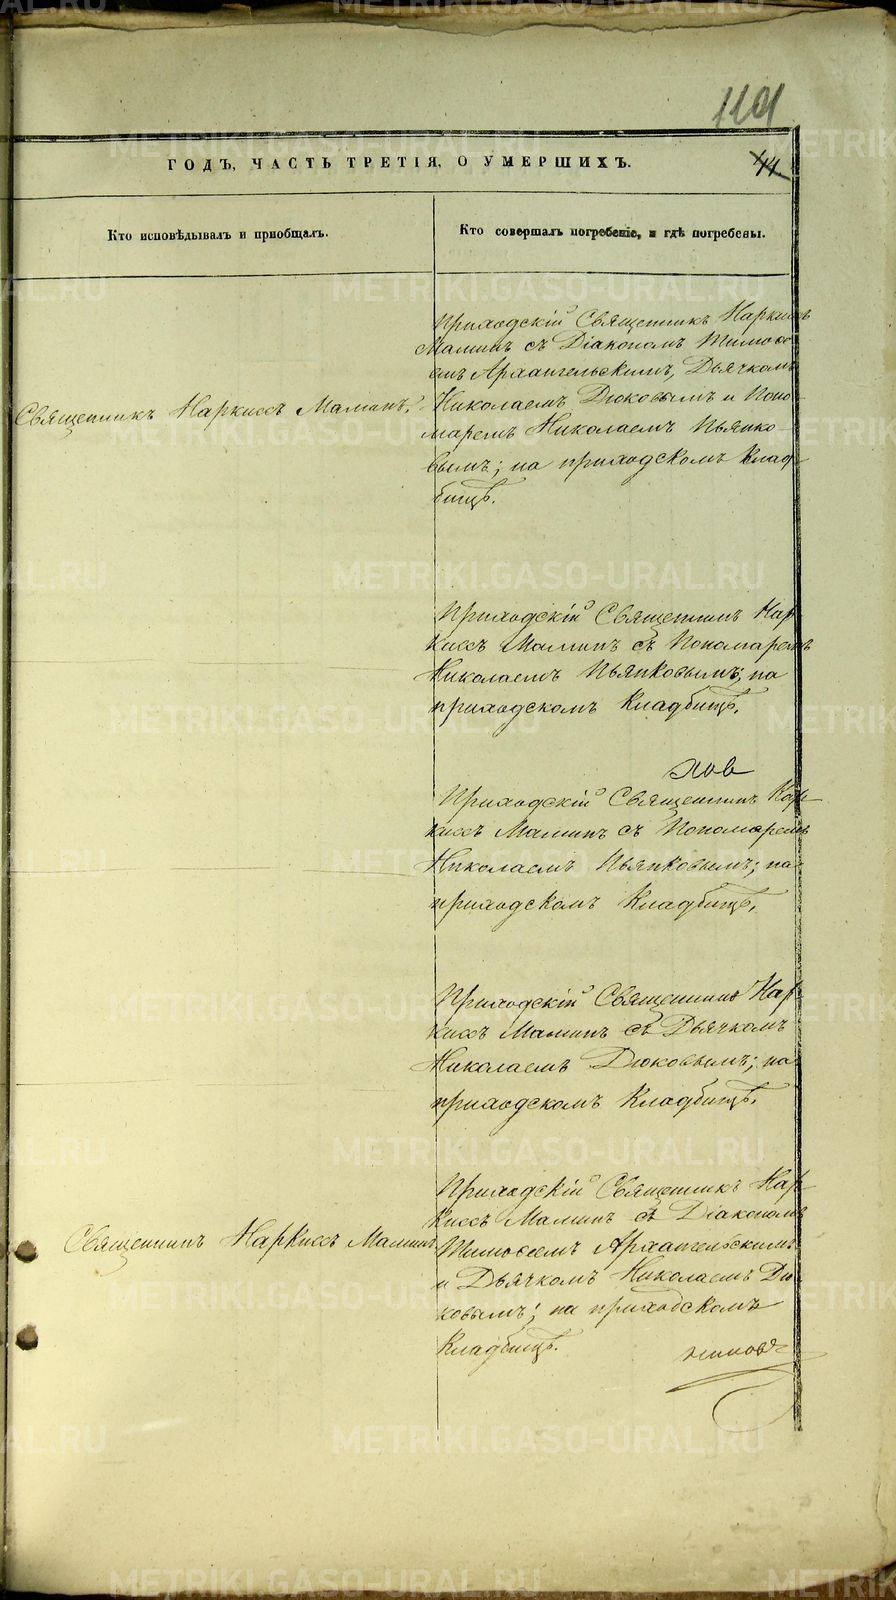 119
ГОДЪ, ЧАСТЬ ТРЕТІЯ, О УМЕРШИХЪ.
44
Кто исповѣдывалъ и пріобщалъ.
Кто совершалъ погребеніе, и гдѣ погребены.
Священникъ Наркиссъ Маминъ.
Приходскій Священникъ Наркиссъ
Маминъ съ Діакономъ Тимоѳе
емъ Архангельскимъ, Дьячкомъ
Николаемъ Дюковымъ и Поно-
маремъ Николаемъ Пьянко-
вымъ; на приходскомъ клад-
бищѣ.
Приходскій Священникъ Нар-
киссъ Маминъ съ Пономаремъ
Николаемъ Пьянковымъ; на
приходскомъ Кладбищѣ.
Приходскій Священникъ Нар-
киссъ Маминъ съ Пономаремъ
Николаемъ Пьянковымъ; на
приходскомъ Кладбищѣ.
Приходскій Священникъ Нар-
киссъ Маминъ съ Дьячкомъ
Николаемъ Дюковымъ; на
приходскомъ Кладбищѣ.
Священникъ Наркиссъ Маминъ
Приходскій Священникъ Нар-
киссъ Маминъ съ Діакономъ
Тимоѳеемъ Архангельскимъ
и Дьячкомъ Николаемъ Дю-
ковымъ; на приходскомъ
Кладбищѣ.
METRIKI.GASO-URAL.RU